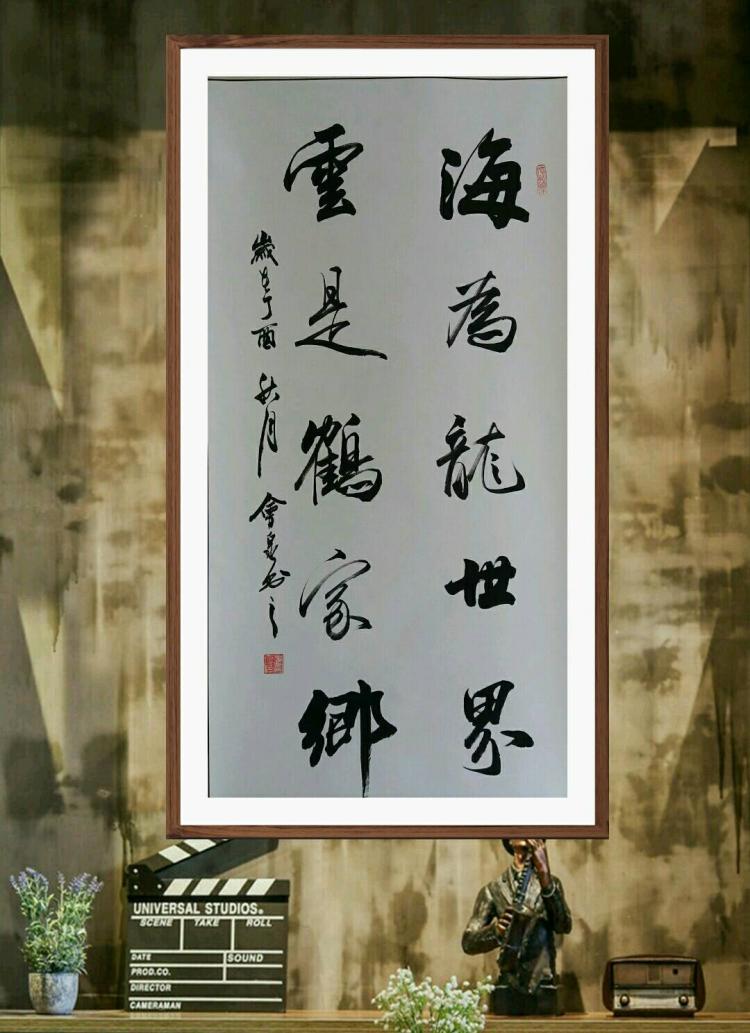 海為龍世界
雲是鶴家鄉
歲在丁酉秋月會泉书之
UNIVERSAL STUDIOS®
SCENE TAKE ROLL
DATE SOUND
PROD.CO.
DIRECTOR
CAMERAMAN